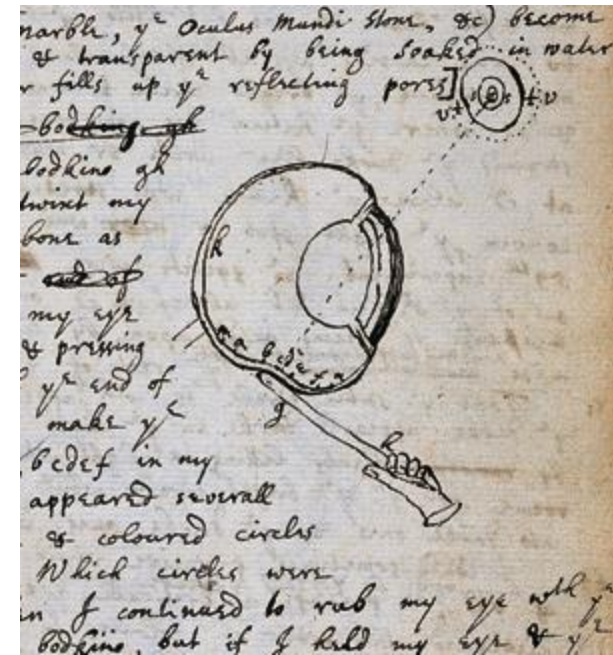 marble, yᵉ Oculus Mundi stone, &c) become
& transparent by being soaked in water
r fills up yᵉ reflecting pores]
bodkine gh
bodkine gh
twixt my
bone as
end of
my eye
& pressing
yᵉ end of
make yᵉ
bcdef in my
appeared severall
& coloured circles
Which circles were
n I continued to rub my eye wᵗʰ yᵉ
bodkine, but if I held my eye & yᵉ
k
a
b c d e f
g
h
r s t s r
v + + v